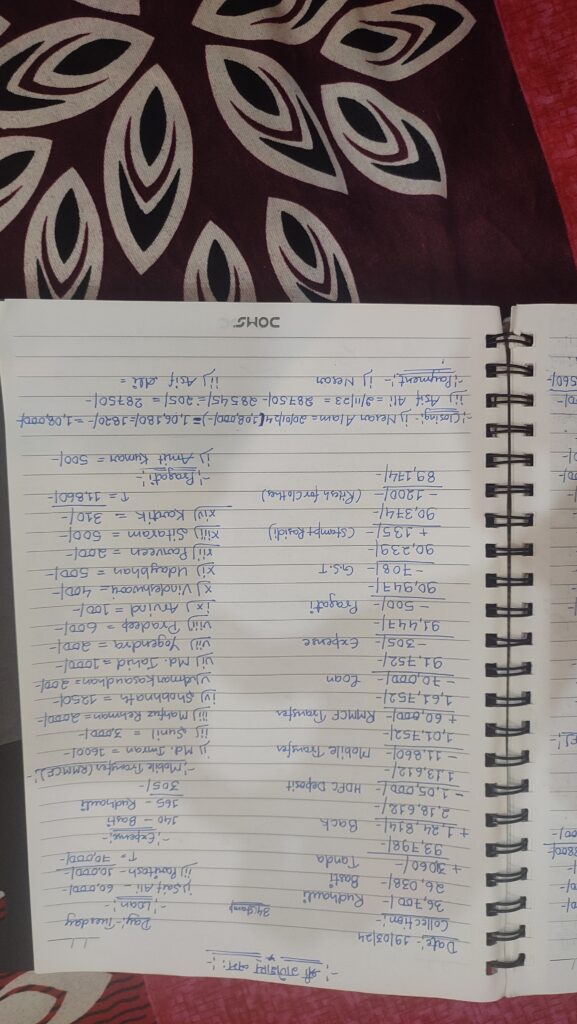 -: श्री गणेशाय नमः :-
Date:- 19/03/24
Day:- Tuesday
Collection:-
36,700/- Rudhauli
26,038/- Basti
+ 31060/- Tanda
93,798/-
+ 1,24,814/- Back
2,18,612/-
- 1,05,000/- HDFC Deposit
1,13,612/-
- 11,860/- Mobile Transfer
1,01,752/-
+ 60,000/- RMMCF Transfer
1,61,752/-
- 70,000/- Loan
91,752/-
- 305/- Expense
91,447/-
- 500/- Pragati
90,947/-
- 708/- G.S.T
90,239/-
+ 135/- (Stamp+Rasidi)
90,374/-
- 1200/- (Ritesh for Clothe)
89,174/-
-: Loan:-
i) Saif Ali - 60,000/-
ii) Paritosh - 10,000/-
T = 70,000/-
-: Expense:-
140 - Basti
165 - Rudhauli
305/-
-: Mobile Transfer (RMMCF):-
i) Md. Imran = 1600/-
ii) Sunil = 3,000/-
iii) Mahfuz Rehman = 2000/-
iv) Shobhnath = 1250/-
v) = 200/-
vi) Md. Jahid = 1000/-
vii) Yogendra = 200/-
viii) Pradeep = 600/-
ix) Arvind = 100/-
x) = 400/-
xi) Udaybhan = 500/-
xii) Parveen = 200/-
xiii) Sitaram = 500/-
xiv) Kartik = 310/-
T = 11,860/-
-: Pragati:-
i) Amit Kumar = 500/-
-: Closing:- i) Nesan Alam = 20/01/24 (1,08,000/-) = 1,06,180/- 1820/- = 1,08,000/-
ii) Asif Ali = 9/11/23 = 28750/- 28545/- = 205/- = 28750/-
-: Payment:- i) Nesan ii) Asif Ali =
DOMS